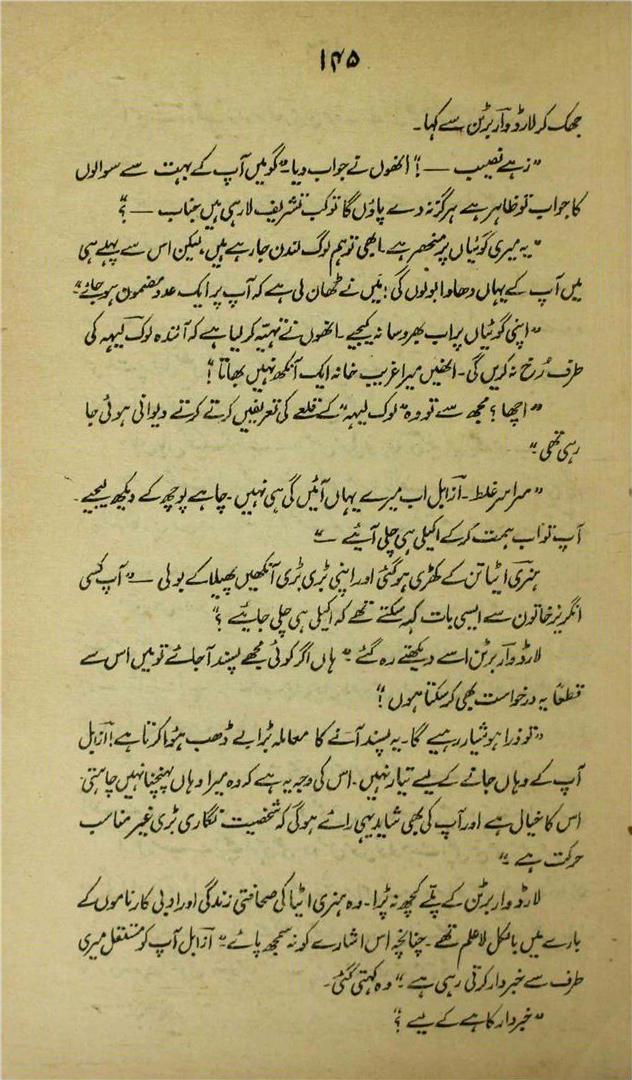 ۱۴۵
جھک کر لارڈ وار برٹن سے کہا۔
”زہے نصیب — !“ انھوں نے جواب دیا۔ ”گو میں آپ کے بہت سے سوالوں
کا جواب تو ظاہر ہے ہرگز نہ دے پاؤں گا تو کب تشریف لا رہی ہیں جناب — ؟“
”یہ میری گوئیاں پر منحصر ہے۔ ابھی تو ہم لوگ لندن جا رہے ہیں، لیکن اس سے پہلے ہی
میں آپ کے یہاں دھاوا بولوں گی! میں نے ٹھان لی ہے کہ آپ پر ایک عدد مضمون ہو جائے“
”اپنی گوئیاں پر اب بھروسا نہ کیجیے۔ انھوں نے تہیّہ کر لیا ہے کہ آئندہ لوک لیہہ کی
طرف رُخ نہ کریں گی۔ انھیں میرا غریب خانہ ایک آنکھ نہیں بھاتا!“
”اچھا؟ مجھ سے تو وہ ”لوک لیہہ“ کے قلعے کی تعریفیں کرتے کرتے دیوانی ہوئی جا
رہی تھی۔“
”سراسر غلط۔ ازابل اب میرے یہاں آئیں گی ہی نہیں۔ چاہے پوچھ کے دیکھ لیجیے۔
آپ تو اب ہمت کر کے اکیلی ہی چلی آیئے —“
ہنری ایٹا تن کے کھڑی ہو گئی اور اپنی بڑی بڑی آنکھیں پھیلا کے بولی — ”آپ کسی
انگریز خاتون سے ایسی بات کہہ سکتے تھے کہ اکیلی ہی چلی جایئے؟“
لارڈ وار برٹن اسے دیکھتے رہ گئے۔ ”ہاں اگر کوئی مجھے پسند آ جائے تو میں اس سے
قطعاً یہ درخواست بھی کر سکتا ہوں!“
”تو ذرا ہوشیار رہیے گا۔ یہ پسند آنے کا معاملہ بڑا بے ڈھب ہُوا کرتا ہے! ازابل
آپ کے وہاں جانے کے لیے تیار نہیں۔ اس کی وجہ یہ ہے کہ وہ میرا وہاں پہنچنا نہیں چاہتی۔
اس کا خیال ہے اور آپ کی بھی شاید یہی رائے ہوگی کہ شخصیت نگاری بڑی غیر مناسب
حرکت ہے۔“
لارڈ وار برٹن کے پلّے کچھ نہ پڑا۔ وہ ہنری ایٹا کی صحافتی زندگی اور ادبی کارناموں کے
بارے میں بالکل لاعلم تھے۔ چنانچہ اس اشارے کو نہ سمجھ پائے۔ ”ازابل آپ کو مستقل میری
طرف سے خبردار کرتی رہی ہے۔“ وہ کہتی گئی۔
”خبردار کاہے کے لیے؟“